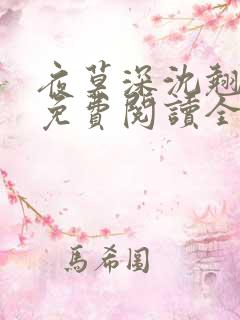 夜草深沈翹
免費閱讀全
馬希圖